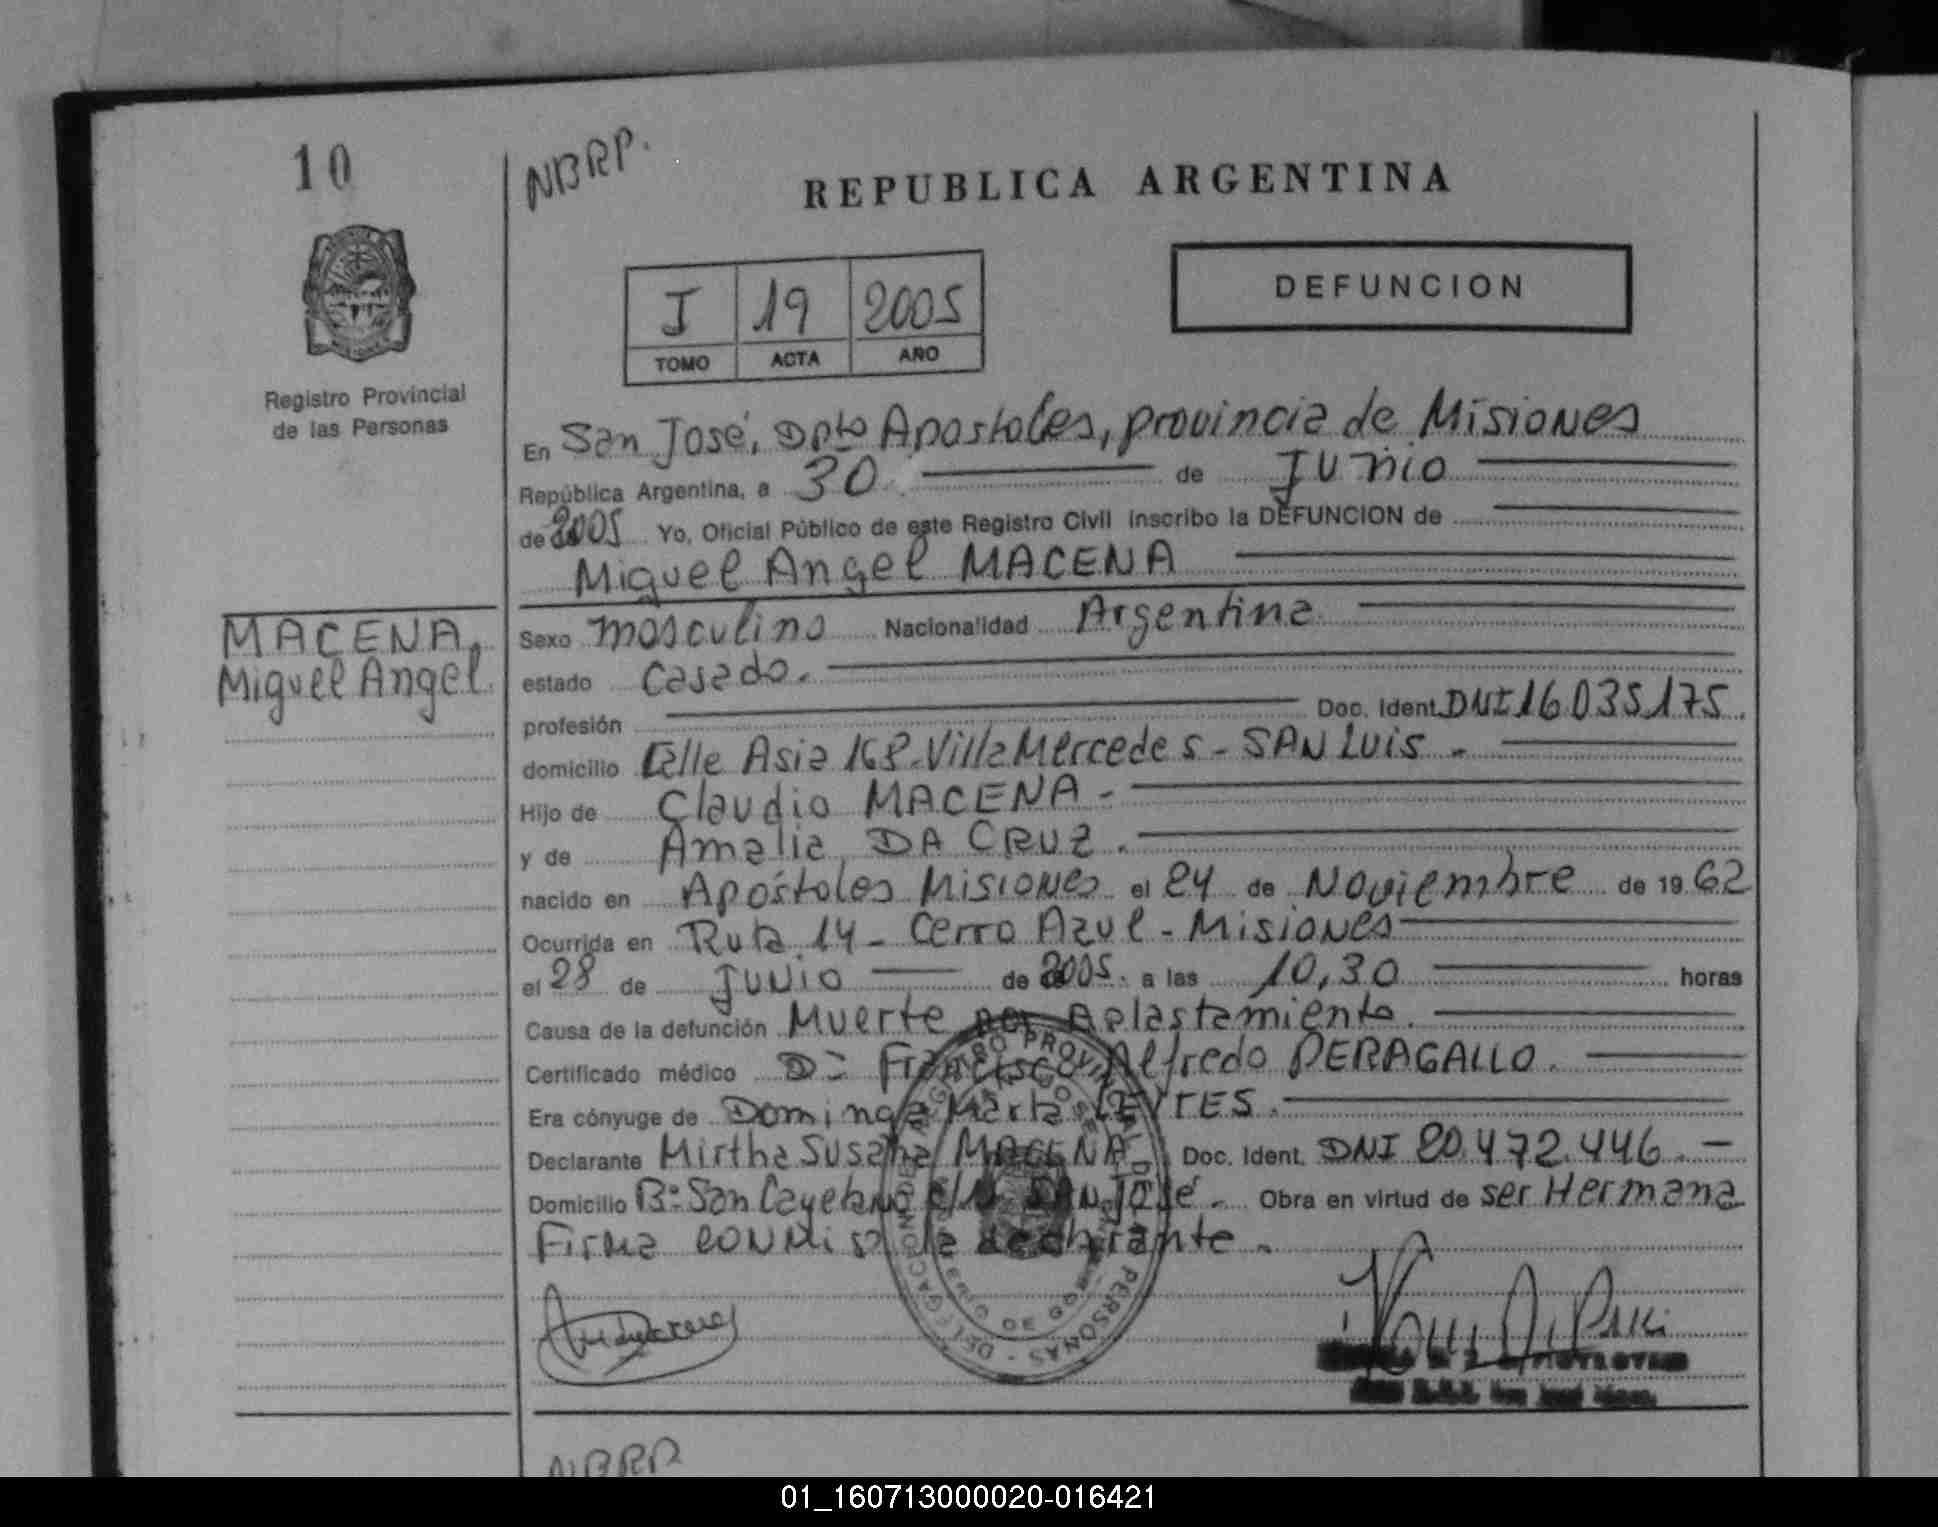 10
NBRP.
REPUBLICA ARGENTINA
I 19 2005
TOMO ACTA AÑO
DEFUNCION
Registro Provincial
de las Personas
En San José, Dpto Apostoles, provincia de Misiones
República Argentina, a 30 de Junio
de 2005 Yo, Oficial Público de este Registro Civil inscribo la DEFUNCION de
Miguel Angel MACENA
MACENA,
Miguel Angel.
Sexo masculino Nacionalidad Argentina
estado Casado.
profesión Doc. Ident. DNI 16.035.175.
domicilio Calle Asia 168-Villa Mercedes - SAN LUIS -
Hijo de Claudio MACENA -
y de Amalia DA CRUZ.
nacido en Apóstoles Misiones el 24 de Noviembre de 1962
Ocurrida en Ruta 14 - Cerro Azul - Misiones
el 28 de Junio de 2005. a las 10,30 horas
Causa de la defunción Muerte por Aplastamiento.
Certificado médico D: Francisco Alfredo PERAGALLO.
Era cónyuge de Dominga Marta
Declarante Mirtha Susana MACENA Doc. Ident. DNI 20.472.446. -
Domicilio B: San Cayetano S/N San José. Obra en virtud de ser Hermana
Firma conmigo la declarante.
NBRP
01_160713000020-016421